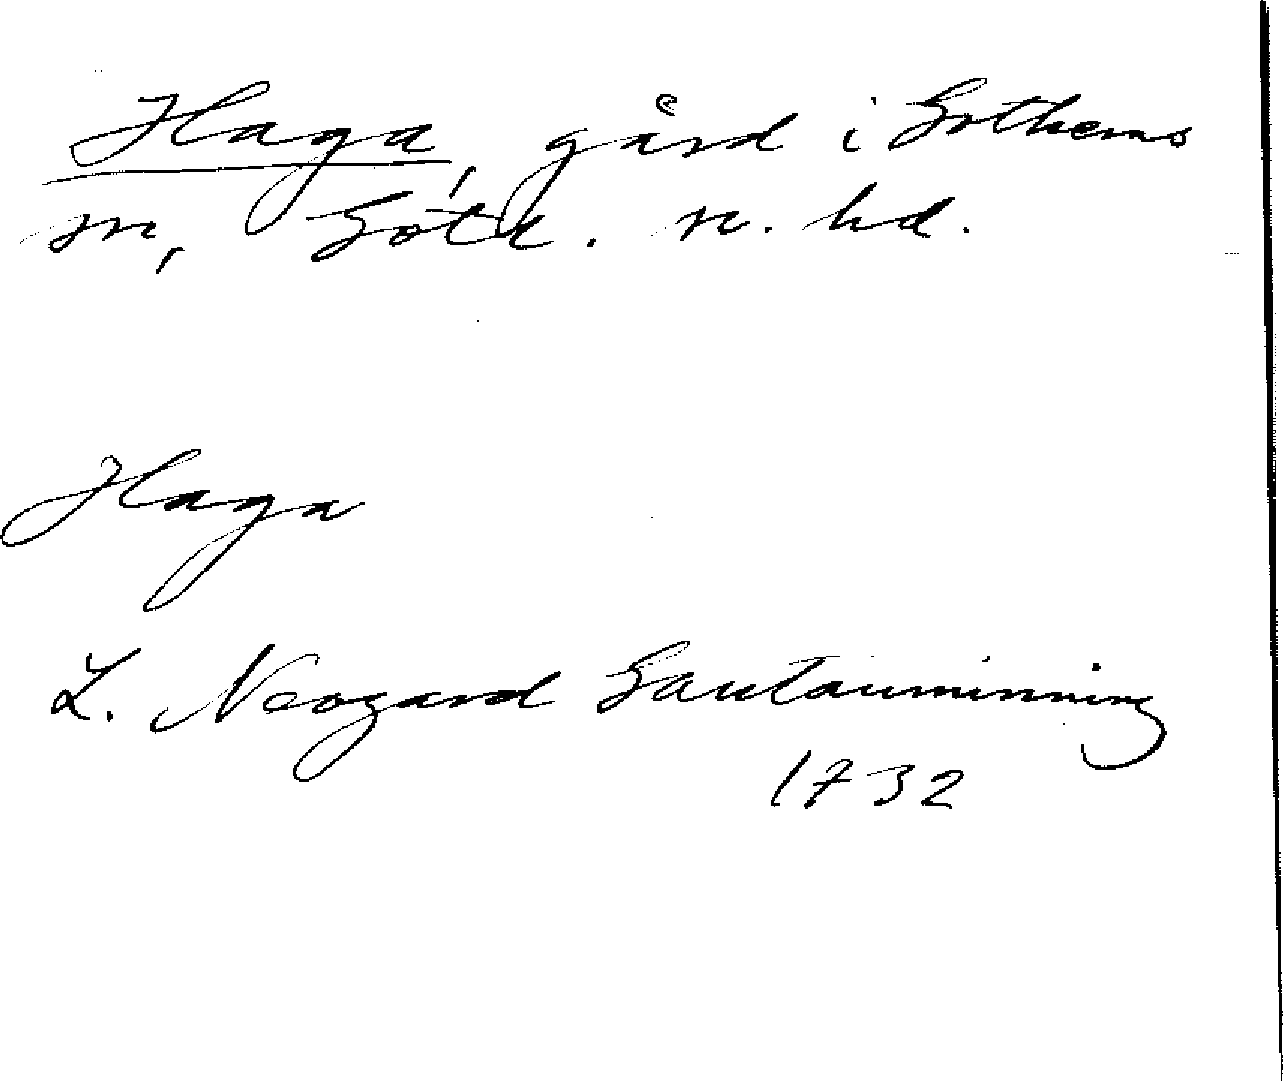 Haga, gård i Gothems
sn, Gotl. n. hd.
Haga
L. Neogard Gautauminning
1732